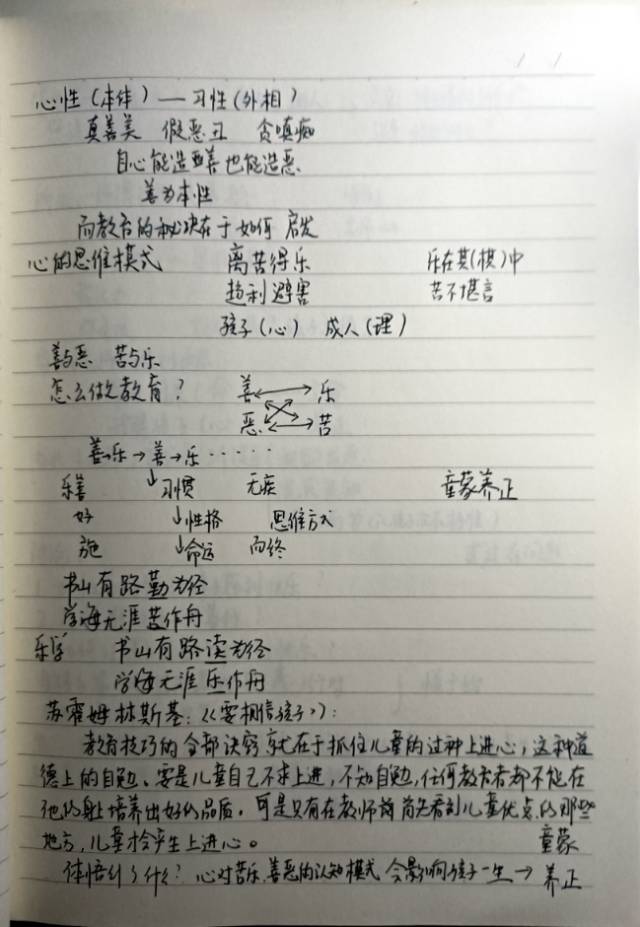 心性（本体）— 习性（外相）
真善美 假恶丑 贪嗔痴
自心能造善也能造恶
善为本性
而教育的秘诀在于如何 启发
心的思维模式 离苦得乐 乐在其(棋)中
趋利避害 苦不堪言
孩子（心） 成人（理）
善与恶 苦与乐
怎么做教育？ 善 ←→ 乐
恶 ←→ 苦
善→乐→善→乐······
乐善 ↓习惯 无疾 童蒙养正
好 ↓性格 思维方式
施 ↓命运 而终
书山有路勤为径
学海无涯苦作舟
乐学 书山有路读为径
学海无涯乐作舟
苏霍姆林斯基：《《要相信孩子》》：
教育技巧的全部诀窍就在于抓住儿童的这种上进心，这种道
德上的自勉。要是儿童自己不求上进，不知自勉，任何教育者都不能在
他的身上培养出好的品质。可是只有在教师首先看到儿童优点的那些
地方，儿童才会产生上进心。 童蒙
体悟到了什么？心对苦乐、善恶的认知模式会影响孩子一生→ 养正